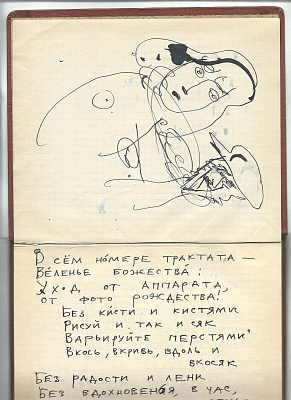 В сём но́мере трактата —
Ве́ленье божества́:
Уход от аппарата,
от фото рождества!
Без ки́сти и кистями
Рисуй и так и сяк
Варьируйте перстями
Вкось, вкривь, вдоль и
вкосяк
Без радости и лени
Без вдохновенья, в час,